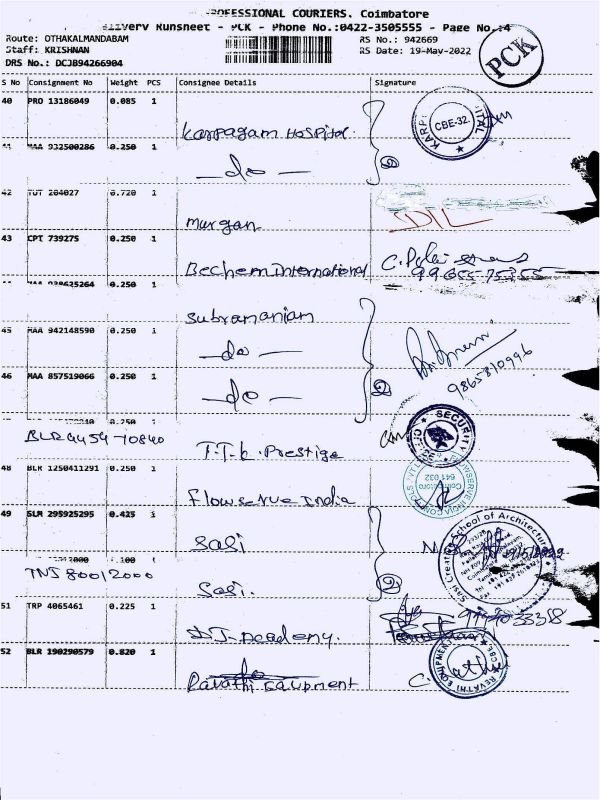 PROFESSIONAL COURIERS. Coimbatore
Delivery Runsheet - PCK - Phone No.:0422-3505555 - Page No.:4
Route: OTHAKALMANDABAM
RS No.: 942669
Staff: KRISHNAN
RS Date: 19-May-2022
DRS No.: DCJB94266904
PCK
S No Consignment No Weight PCS Consignee Details Signature
40 PRO 13186049 0.085 1
Karpagam Hospital.
CBE-32
41 MAA 932500286 0.250 1
—do—
42 TUT 204027 0.720 1
Murgan
43 CPT 739275 0.250 1
Bechem international
99655-75355
44 MAA 938625264 0.250 1
Subramaniam
45 MAA 942148590 0.250 1
—do—
9865810996
46 MAA 857519066 0.250 1
—do—
0.250 1
BLR 4454-10840
T.T.k. Prestige
SECURITY OFFICE
48 BLR 1250411291 0.250 1
Flowserve India
641 032
49 SLM 295925295 0.425 1
Sasi
School of Architecture
TNJ 80012000
Sasi.
51 TRP 4065461 0.225 1
DJ-Academy.
52 BLR 190290579 0.820 1
do
Ravathi Equipment
REVATHI EQUIPMENT CBE